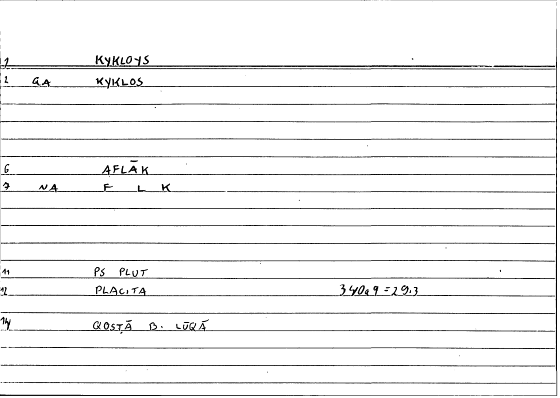 1 KYKLOYS
2 GA KYKLOS
6 AFLĀK
7 NA F L K
11 PS PLUT
12 PLACITA 340a9=29.3
14 QOSṬĀ B. LŪQĀ